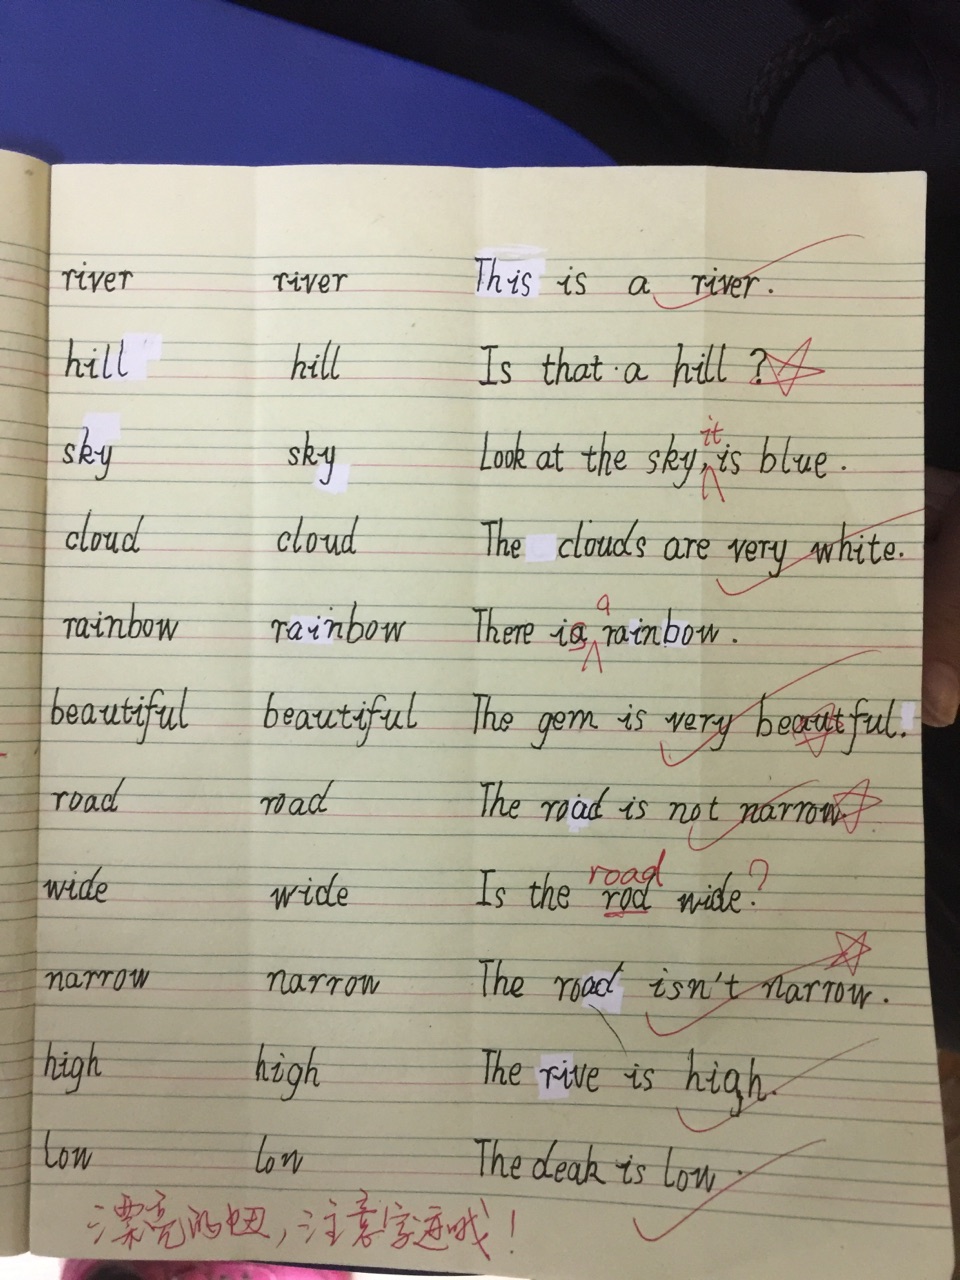 river river This is a river.
hill hill Is that a hill ?
it
sky sky Look at the sky, is blue.
cloud cloud The clouds are very white.
a
rainbow rainbow There is rainbow.
beautiful beautiful The gem is very beautful.
road road The road is not narrow.
road
wide wide Is the rod wide?
narrow narrow The road isn't narrow.
high high The rive is high.
low low The deak is low.
漂亮的妞,注意字迹哦!